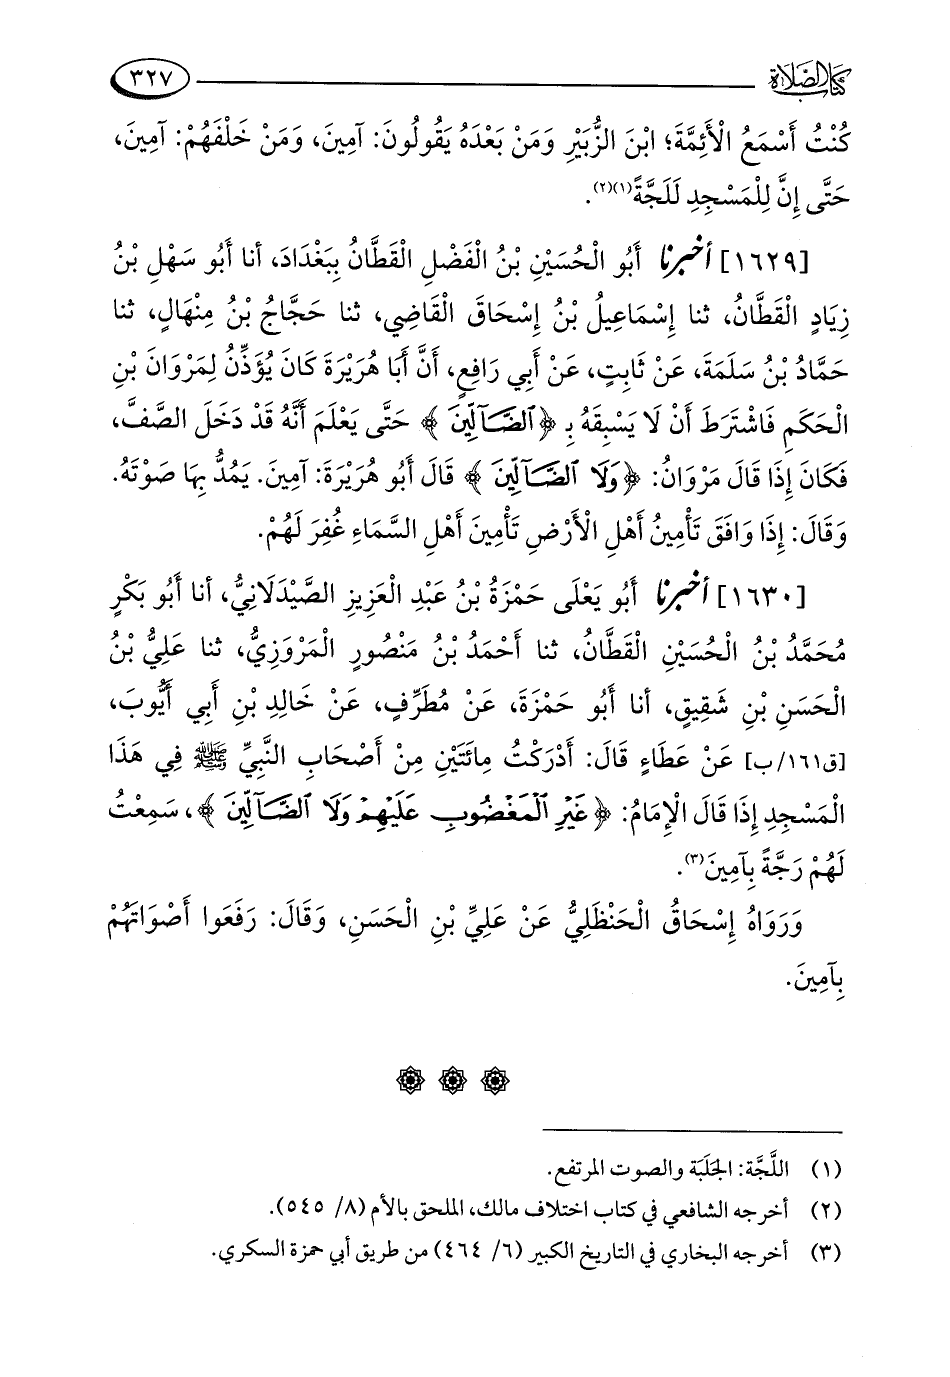 كتاب الصلاة ٣٢٧
كُنْتُ أَسْمَعُ الْأَئِمَّةَ؛ ابْنَ الزُّبَيْرِ وَمَنْ بَعْدَهُ يَقُولُونَ: آمِينَ، وَمَنْ خَلْفَهُمْ: آمِينَ،
حَتَّى إِنَّ لِلْمَسْجِدِ لَلَجَّةً(١)(٢).
[١٦٢٩] أخبرنا أَبُو الْحُسَيْنِ بْنُ الْفَضْلِ الْقَطَّانُ بِبَغْدَادَ، أنا أَبُو سَهْلِ بْنُ
زِيَادٍ الْقَطَّانُ، ثنا إِسْمَاعِيلُ بْنُ إِسْحَاقَ الْقَاضِي، ثنا حَجَّاجُ بْنُ مِنْهَالٍ، ثنا
حَمَّادُ بْنُ سَلَمَةَ، عَنْ ثَابِتٍ، عَنْ أَبِي رَافِعٍ، أَنَّ أَبَا هُرَيْرَةَ كَانَ يُؤَذِّنُ لِمَرْوَانَ بْنِ
الْحَكَمِ فَاشْتَرَطَ أَنْ لَا يَسْبِقَهُ بِـ ﴿ٱلضَّآلِّينَ﴾ حَتَّى يَعْلَمَ أَنَّهُ قَدْ دَخَلَ الصَّفَّ،
فَكَانَ إِذَا قَالَ مَرْوَانُ: ﴿وَلَا ٱلضَّآلِّينَ﴾ قَالَ أَبُو هُرَيْرَةَ: آمِينَ. يَمُدُّ بِهَا صَوْتَهُ.
وَقَالَ: إِذَا وَافَقَ تَأْمِينُ أَهْلِ الْأَرْضِ تَأْمِينَ أَهْلِ السَّمَاءِ غُفِرَ لَهُمْ.
[١٦٣٠] أخبرنا أَبُو يَعْلَى حَمْزَةُ بْنُ عَبْدِ الْعَزِيزِ الصَّيْدَلَانِيُّ، أنا أَبُو بَكْرٍ
مُحَمَّدُ بْنُ الْحُسَيْنِ الْقَطَّانُ، ثنا أَحْمَدُ بْنُ مَنْصُورٍ الْمَرْوَزِيُّ، ثنا عَلِيُّ بْنُ
الْحَسَنِ بْنِ شَقِيقٍ، أنا أَبُو حَمْزَةَ، عَنْ مُطَرِّفٍ، عَنْ خَالِدِ بْنِ أَبِي أَيُّوبَ،
[ق١٦١/ب] عَنْ عَطَاءٍ قَالَ: أَدْرَكْتُ مِائَتَيْنِ مِنْ أَصْحَابِ النَّبِيِّ ﷺ فِي هَذَا
الْمَسْجِدِ إِذَا قَالَ الْإِمَامُ: ﴿غَيْرِ ٱلْمَغْضُوبِ عَلَيْهِمْ وَلَا ٱلضَّآلِّينَ﴾، سَمِعْتُ
لَهُمْ رَجَّةً بِآمِينَ(٣).
وَرَوَاهُ إِسْحَاقُ الْحَنْظَلِيُّ عَنْ عَلِيِّ بْنِ الْحَسَنِ، وَقَالَ: رَفَعُوا أَصْوَاتَهُمْ
بِآمِينَ.
(١) اللَّجَّة: الجَلَبَة والصوت المرتفع.
(٢) أخرجه الشافعي في كتاب اختلاف مالك، الملحق بالأم (٨/ ٥٤٥).
(٣) أخرجه البخاري في التاريخ الكبير (٦/ ٤٦٤) من طريق أبي حمزة السكري.